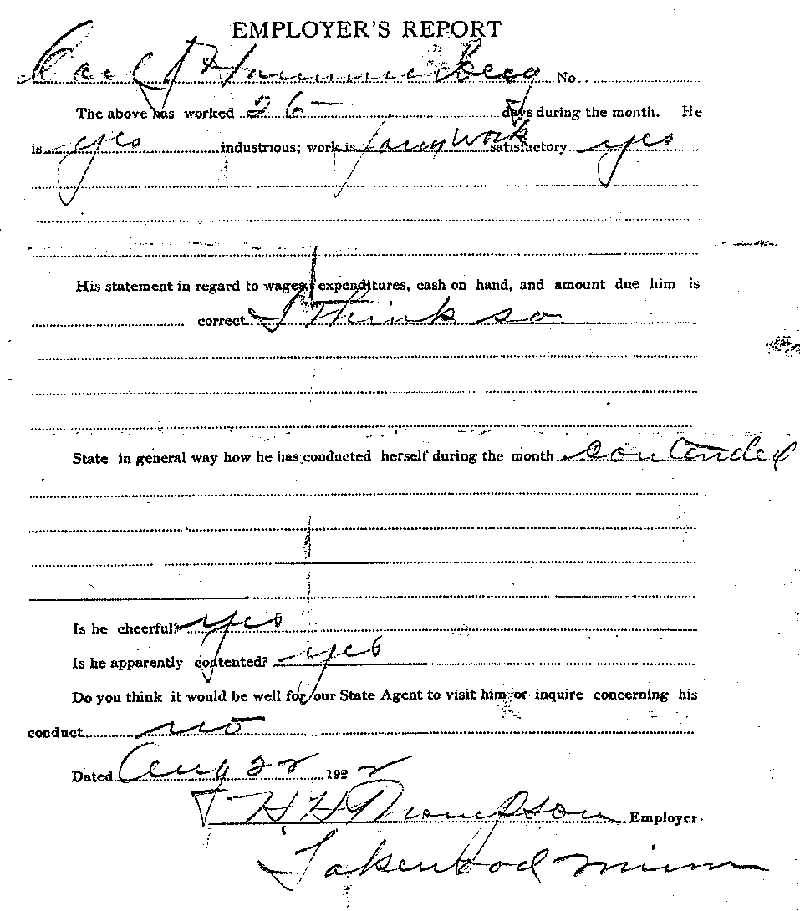 EMPLOYER'S REPORT
Carl J Hammerberg No.
The above has worked 26 days during the month. He
is yes industrious; work is farm work satisfactory yes
His statement in regard to wages, expenditures, cash on hand, and amount due him is
correct. I think so
State in general way how he has conducted herself during the month contended
Is he cheerful? yes
Is he apparently contented? yes
Do you think it would be well for our State Agent to visit him or inquire concerning his
conduct no
Dated Aug 22 1922
H H Thompson Employer.
Minn